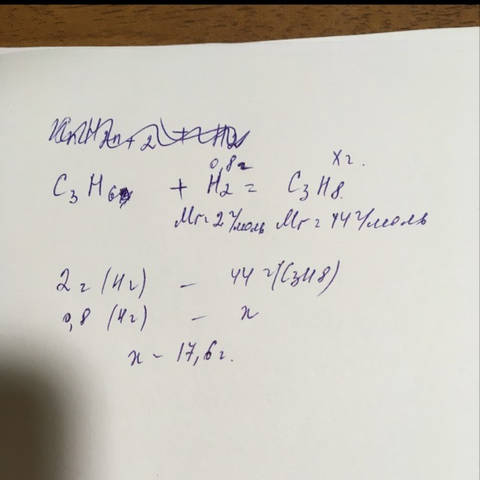 0,8г        Xг.
C3H6 + H2 = C3H8
Mr=2г/моль Mr=44г/моль
2г (H2) – 44г (C3H8)
0,8 (H2) – x
x – 17,6г.